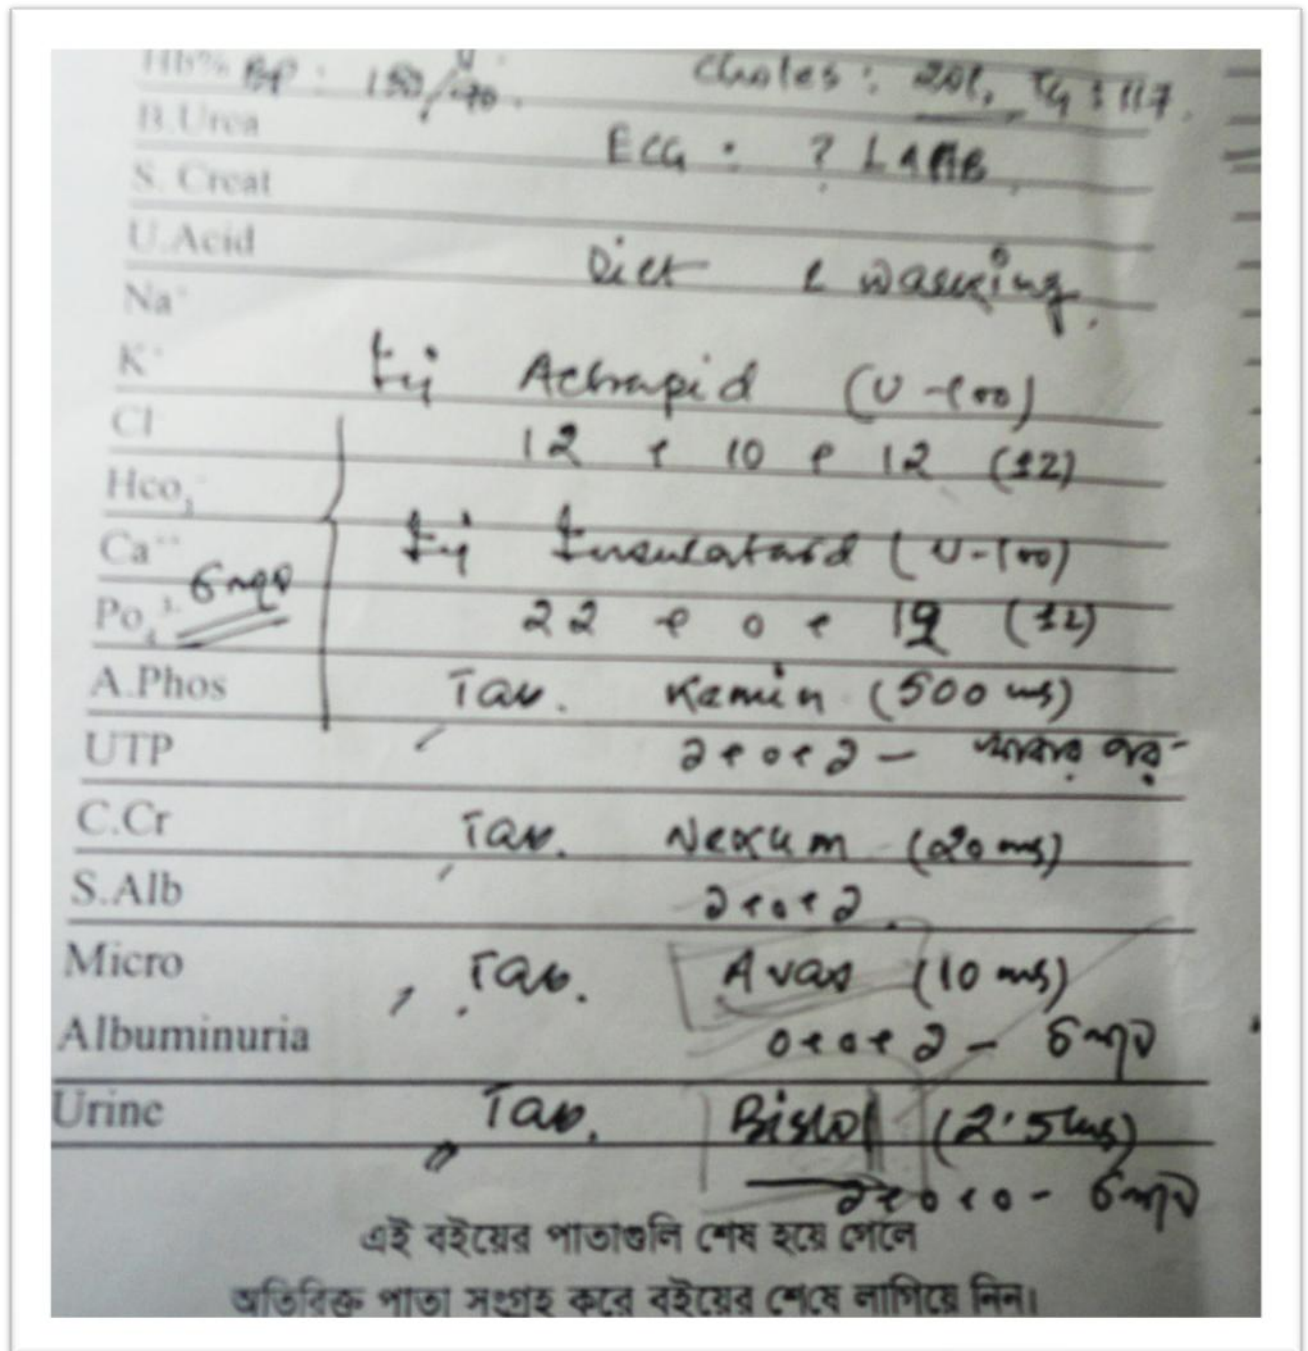 Hb% BP : 150/70. Choles : 201, TG : 117.
B.Urea
ECG : ? LAHB
S. Creat
U.Acid
Diet & walking.
Na⁺
K⁺ Inj Actrapid (U-100)
Cl⁻
12 + 10 + 12 (12)
Hco₃⁻
Ca⁺⁺ Inj Insulatard (U-100)
চলবে
Po₄³⁻ 22 + 0 + 12 (12)
A.Phos Tab. Kemin (500 mg)
UTP ১+০+১ – খাবার পর
C.Cr Tab. Nexum (20 mg)
S.Alb ১+০+১
Micro Tab. Avas (10 mg)
Albuminuria ০+০+১ – চলবে
Urine Tab. Bislol (2.5mg)
১+০+০ – চলবে
এই বইয়ের পাতাগুলি শেষ হয়ে গেলে
অতিরিক্ত পাতা সংগ্রহ করে বইয়ের শেষে লাগিয়ে নিন।